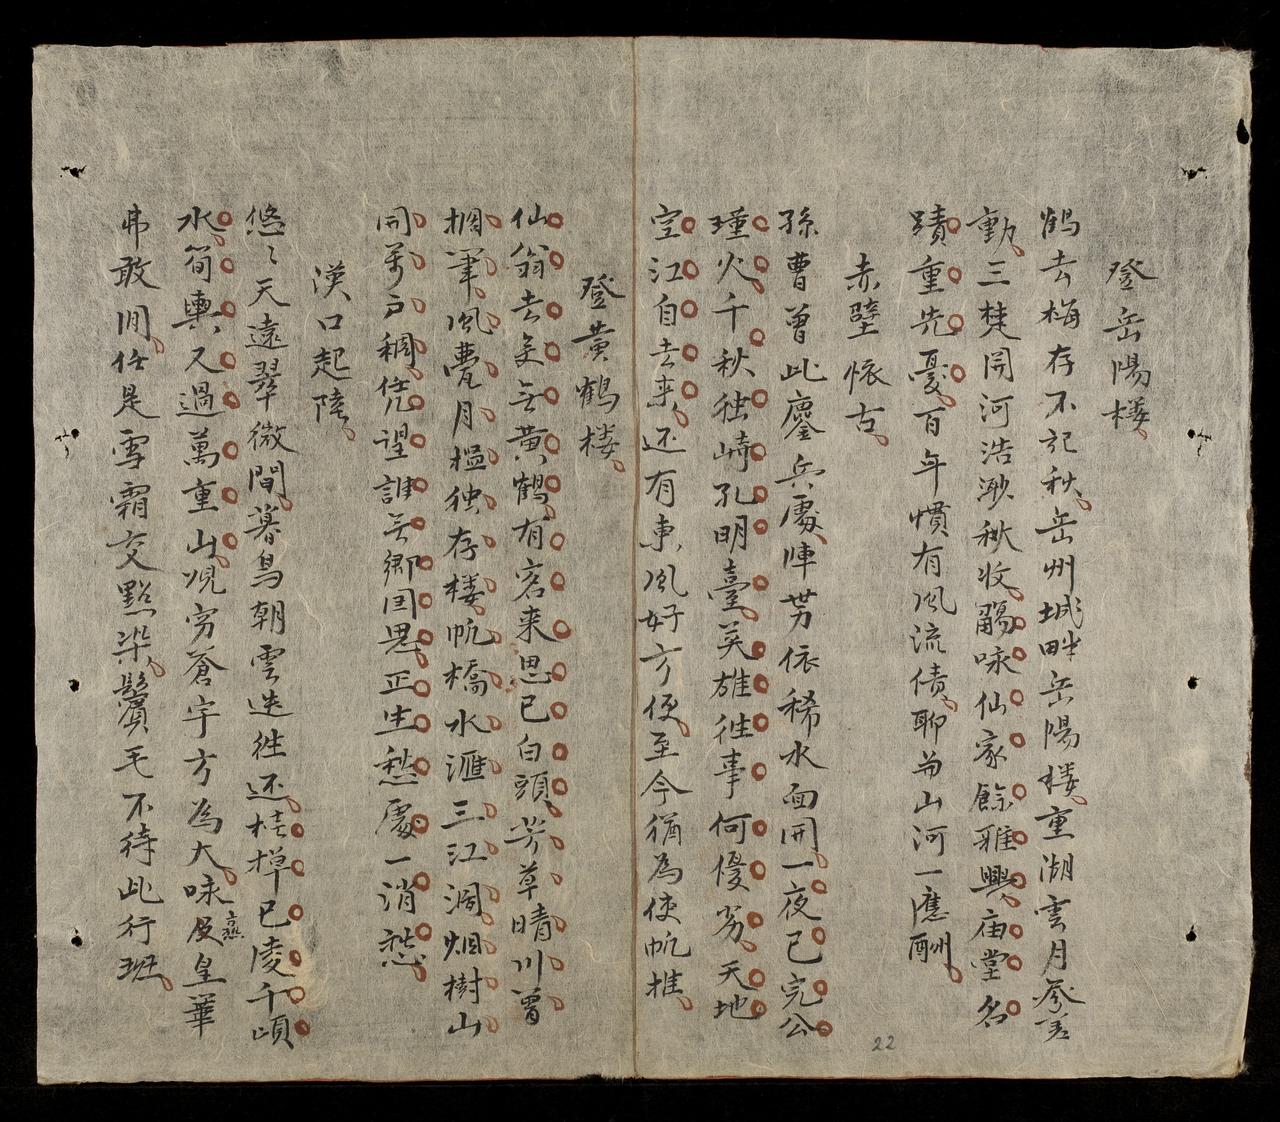 登岳陽楼
鶴去梅存不記秋岳州城畔岳陽楼重湖雲月參寥
動三楚開河浩渺秋收觴咏仙家餘雅興庙堂名
蹟重先憂百年慣有风流債聊為山河一應酬
赤壁懐古
孫曹曾此鏖兵處陣势依稀水面開一夜已完公
瑾火千秋独峙孔明臺英雄徃事何優劣天地
空江自去來还有東风好方便至今猶為使帆推
登黄鶴楼
仙翁去矣无黄鶴有客来思已白頭芳草晴川曾
搁筆风甍月榲独存楼帆檣水滙三江濶烟樹山
開萬户稠凭望誰无鄉国思正生愁處一消愁
漢口起陸
悠〻天遠翠微間暮鳥朝雲迭徃还桂棹已凌千頃
水筍輿又過萬重山况穷蒼宇方為大咏及皇華
弗敢閒任是雪霜交點染鬢毛不待此行班
燕
22